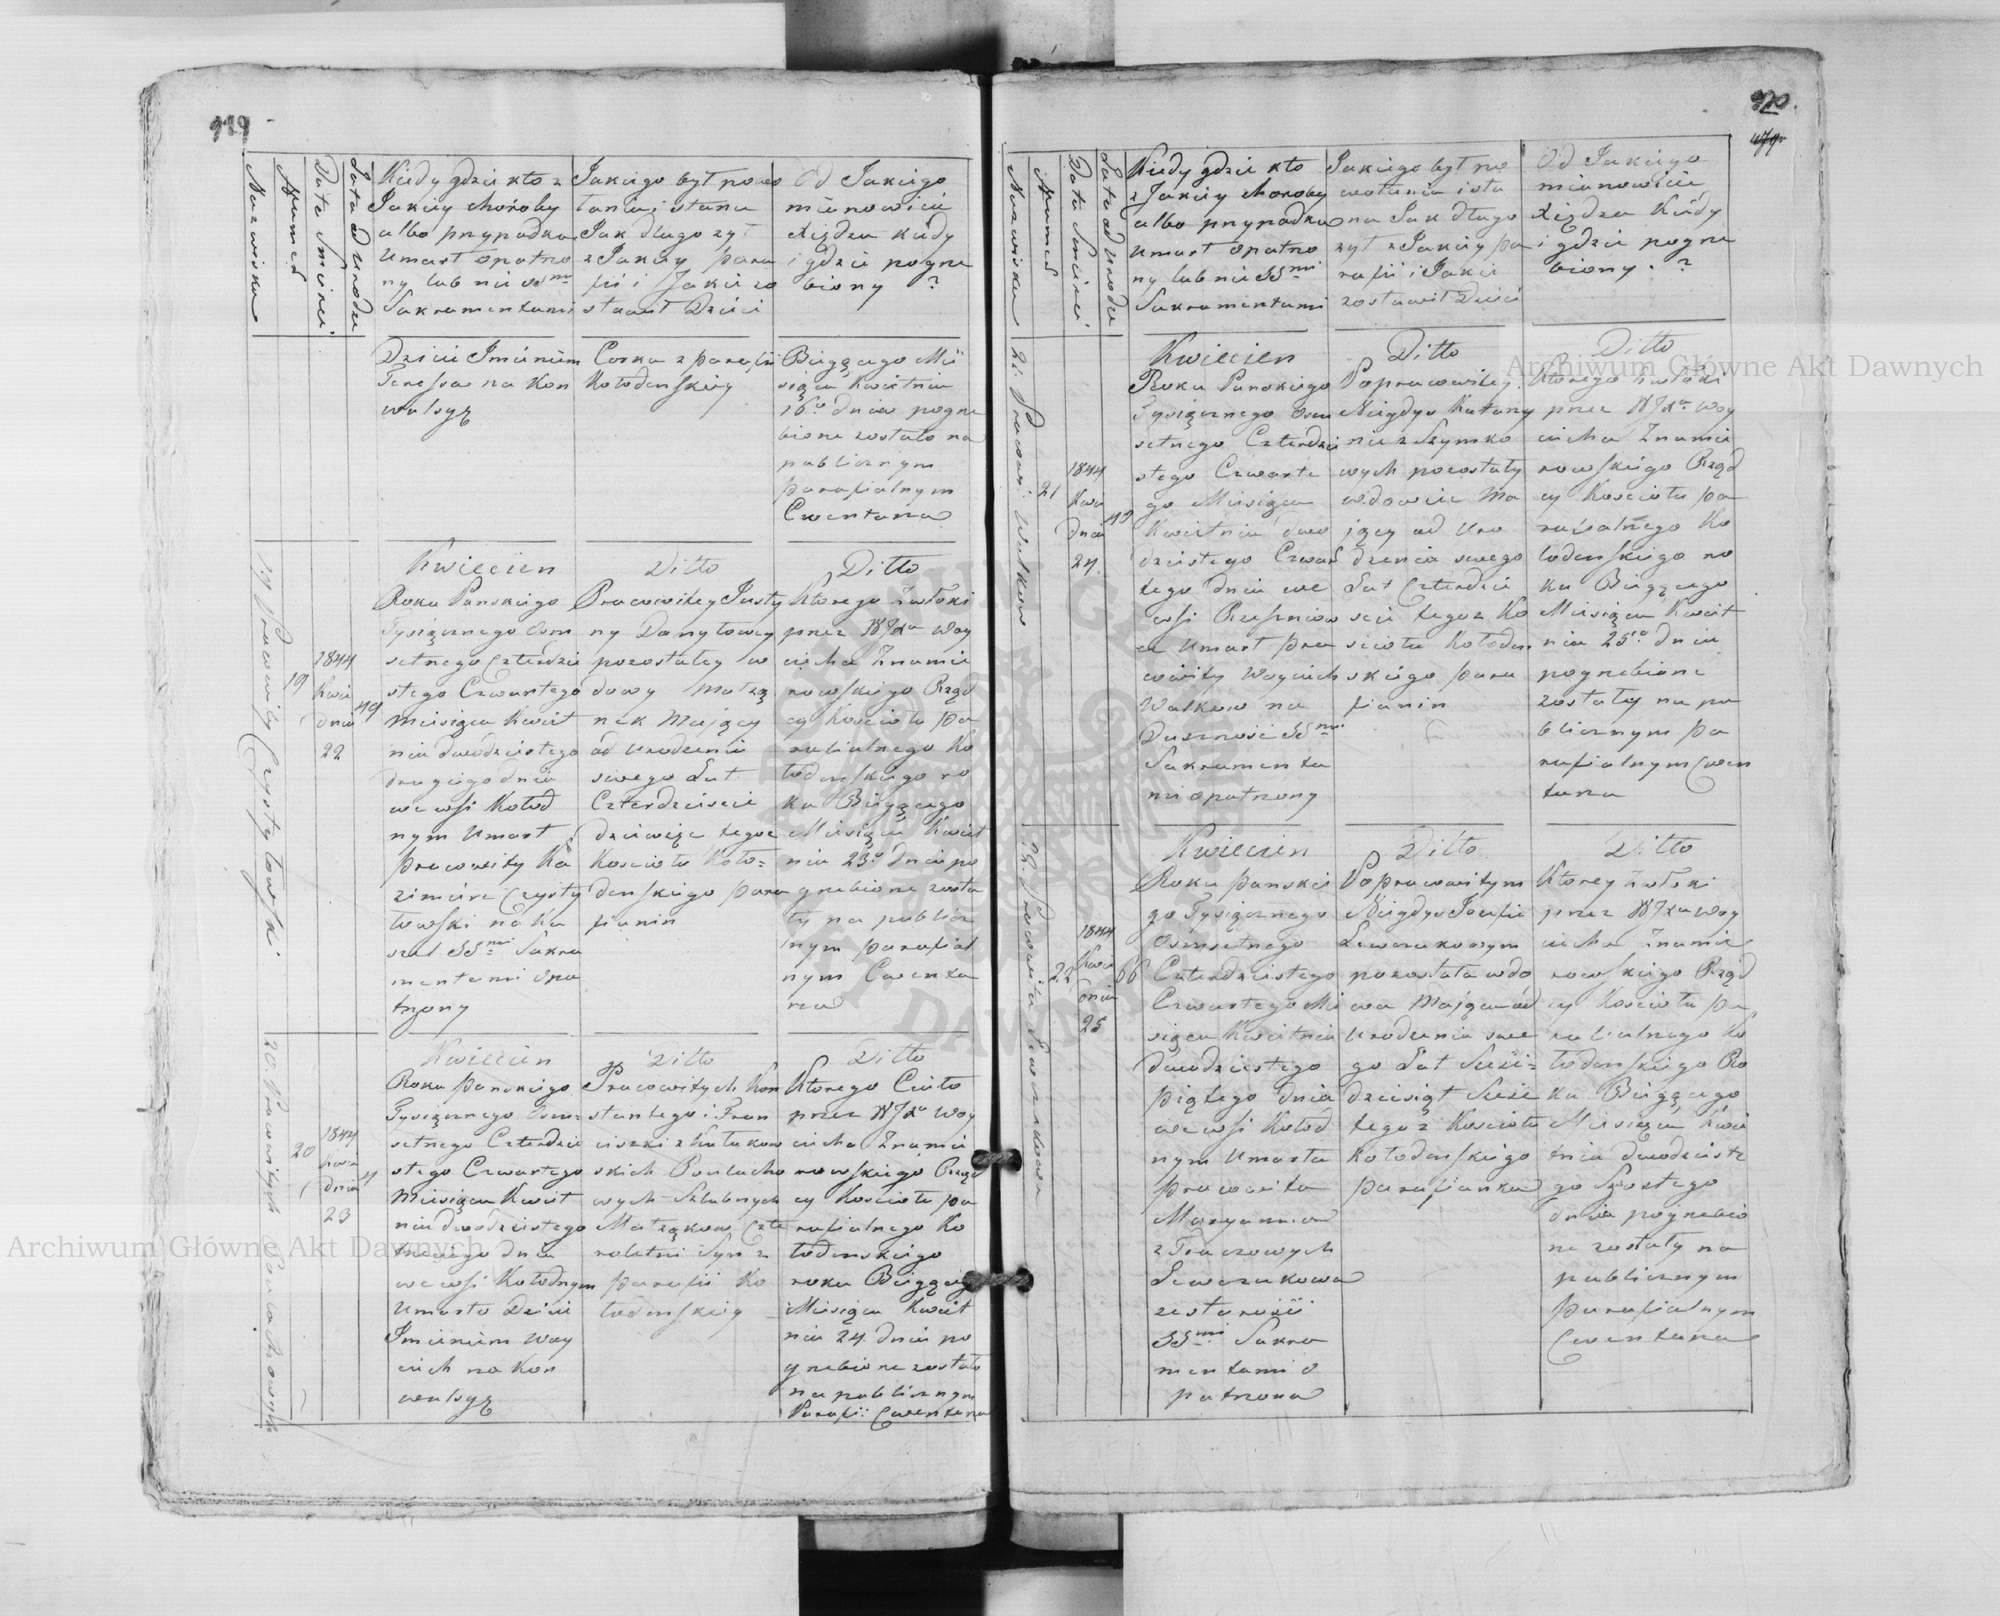 919
Nazwisko
Numer
Data Smierci
Lata od Urodz
Kiedy gdzie kto z
Jakiey choroby
albo przypadku
Umarł opatrzo
ny lub nie SSmi
Sakramentami
Jakiego był powo
łania i stanu
Jak długo żył
z Jakiey para
fii i Jakie zo
stawił Dzieci
Od Jakiego
mianowicie
Xiędza kiedy
i gdzie pogrze
biony ?
Dziecie Imieniem
Teressa na kon
wulsyą
Corka z parafii
Kołodenskiey
Bieżącego Mie
siąca Kwietnia
16o dnia pogrze
bione zostało na
publicznym
parafialnym
Cmentarzu
19 Pracowity Czystytowski.
19
1844
Kwie
dnia
22
49
Kwiecien
Roku Panskiego
Tysiącznego Osm
setnego Czterdzie
stego Czwartego
Miesiąca Kwiet
nia dwódziestego
drugiego dnia
we wsi Kołod
nym Umarł
pracowity Ka
zimierz Czysty
towski na ka
szel SSmi Sakra
mentami opa
trzony
Ditto
Pracowitey Justy
ny Danyłowey
pozostałey w
dowy Małżą
nek Mający
od Urodzenia
swego Lat
Czterdzieście
dziewięc tegoż
Kosciołu Koło=
denskiego para
fianin
Ditto
Ktorego Zwłoki
przez WJXa Woy
ciecha Znamie
rowskiego Rząd
cy Kościołu pa
rafialnego Ko
łodenskiego ro
ku Bieżącego
Miesiąca Kwiet
nia 23o dnia po
grzebione zosta
ły na publicz
nym parafial
nym Cmenta
rzu
20. Pracowitych
20
1844
Kwie
dnia
23
4
Kwiecien
Roku panskiego
Tysiącznego Osm=
setnego Czterdzie
stego Czwartego
Miesiąca Kwiet
nia dwodziestego
trzeciego dnia
we wsi Kołodnym
Umarło Dziecie
Imieniem Woy
ciech na kon
wulsyą
Ditto
Pracowitych Kon
stantego i Fran
ciszki z Kułakow
skich
wych Szlubnych
Małżąkow Czte
roletni Syn z
parafii Ko
łodenskiey
Ditto
Ktorego Ciało
przez WJXa Woy
ciecha Znamie
rowskiego Rząd
cy Kościołu pa
rafialnego Ko
łodenskiego
roku Bieżącego
Miesiąca Kwiet
nia 24. dnia po
grzebione zostało
na publicznym
Parafii: Cmentarzu
920.
Nazwisko
Numer
Data Smierci
Lata od Urodz
Kiedy gdzie kto
z Jakiey choroby
albo przypadku
Umarł opatrzo
ny lub nie SSmi
Sakramentami
Jakiego był po
wołania i sta
nu Jak długo
żył z Jakiey pa
rafii i Jakie
zostawił Dzieci
Od Jakiego
mianowicie
Xiędza Kiedy
i gdzie pogrze
biony. ?
21. Pracowi: Wałkow
21
1844
Kwie
dnia
24.
40
Kwiecien
Roku Panskiego
Tysiącznego Osm
setnego Czterdzie
stego Czwarte
go Miesiąca
Kwietnia dwo
dziestego Czwar
tego dnia we
wsi Rzesniow
ce Umarł pra
cowity Woyciech
Wałkow na
Duszność SSmi
Sakramenta
mi opatrzony
Ditto
Po pracowitey
Niegdys Katarzy
nie z Szymko
wych pozostały
wdowiec Ma
jący od Uro
dzenia swego
Lat Czterdzie
scie tegoż Ko
sciołu Kołoden
skiego para
fianin
Ditto
Ktorego Zwłoki
przez WJXa Woy
ciecha Znamie
rowskiego Rząd
cy Kościołu pa
rafialnego Ko
łodenskiego ro
ku Bieżącego
Miesiąca Kwiet
nia 25go dnia
pogrzebione
zostały na pu
blicznym pa
rafialnym Cmen
tarzu
22. Pracowita Lewczukowa
22
1844
Kwie
dnia
25
66
Kwiecien
Roku panskie
go Tysiącznego
Osmsetnego
Czterdziestego
Czwartego Mie
siąca Kwietnia
Dwodziestego
piątego dnia
we wsi Kołod
nym Umarła
pracowita
Maryanna
z Tkaczowych
Lewczukowa
ze starości
SSmi Sakra
mentami o
patrzona
Ditto
Po pracowitym
Niegdys Jozefie
Lewczukowym
pozostała wdo
wa Mająca od
Urodzenia swe
go Lat Sześć=
dziesiąt Sześć
tegoż Kościołu
Kołodenskiego
parafianka
Ditto
Ktorey Zwłoki
przez WJXa Woy
ciecha Znamie
rowskiego Rząd
cy Kościołu pa
rafialnego Ko
łodenskiego Ro
ku Bieżącego
Miesiąca Kwie
tnia Dwodzieste
go Szostego
dnia pogrzebio
ne zostały na
publicznym
parafialnym
Cmentarzu
Archiwum Główne Akt Dawnych
Archiwum Główne Akt Dawnych